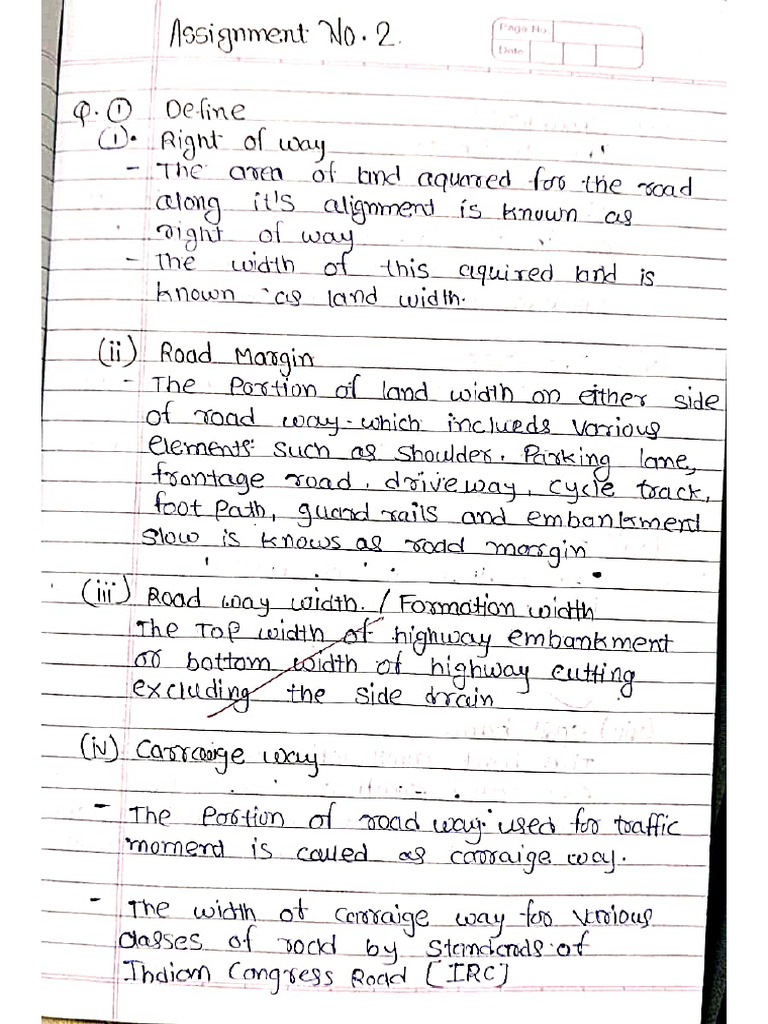 Assignment No. 2.
Page No
Date
Q. ① Define
(1). Right of way
- The area of land aquared for the road
along it's alignment is known as
right of way
- The width of this aquired land is
known as land width.
(ii) Road Margin
- The Portion of land width on either side
of road way which inclueds various
elements such as shoulder. Parking lane,
frontage road, driveway, cycle track,
foot Path, guard rails and embankment
slow is knows as road margin
(iii) Road way width. / Formation width
The Top width of highway embankment
or bottom width of highway cutting
excluding the side drain
(iv) Carraige way
- The Portion of road way used for traffic
moment is called as carraige way.
- The width of carraige way for various
classes of road by Standards of
Indian Congress Road [IRC]